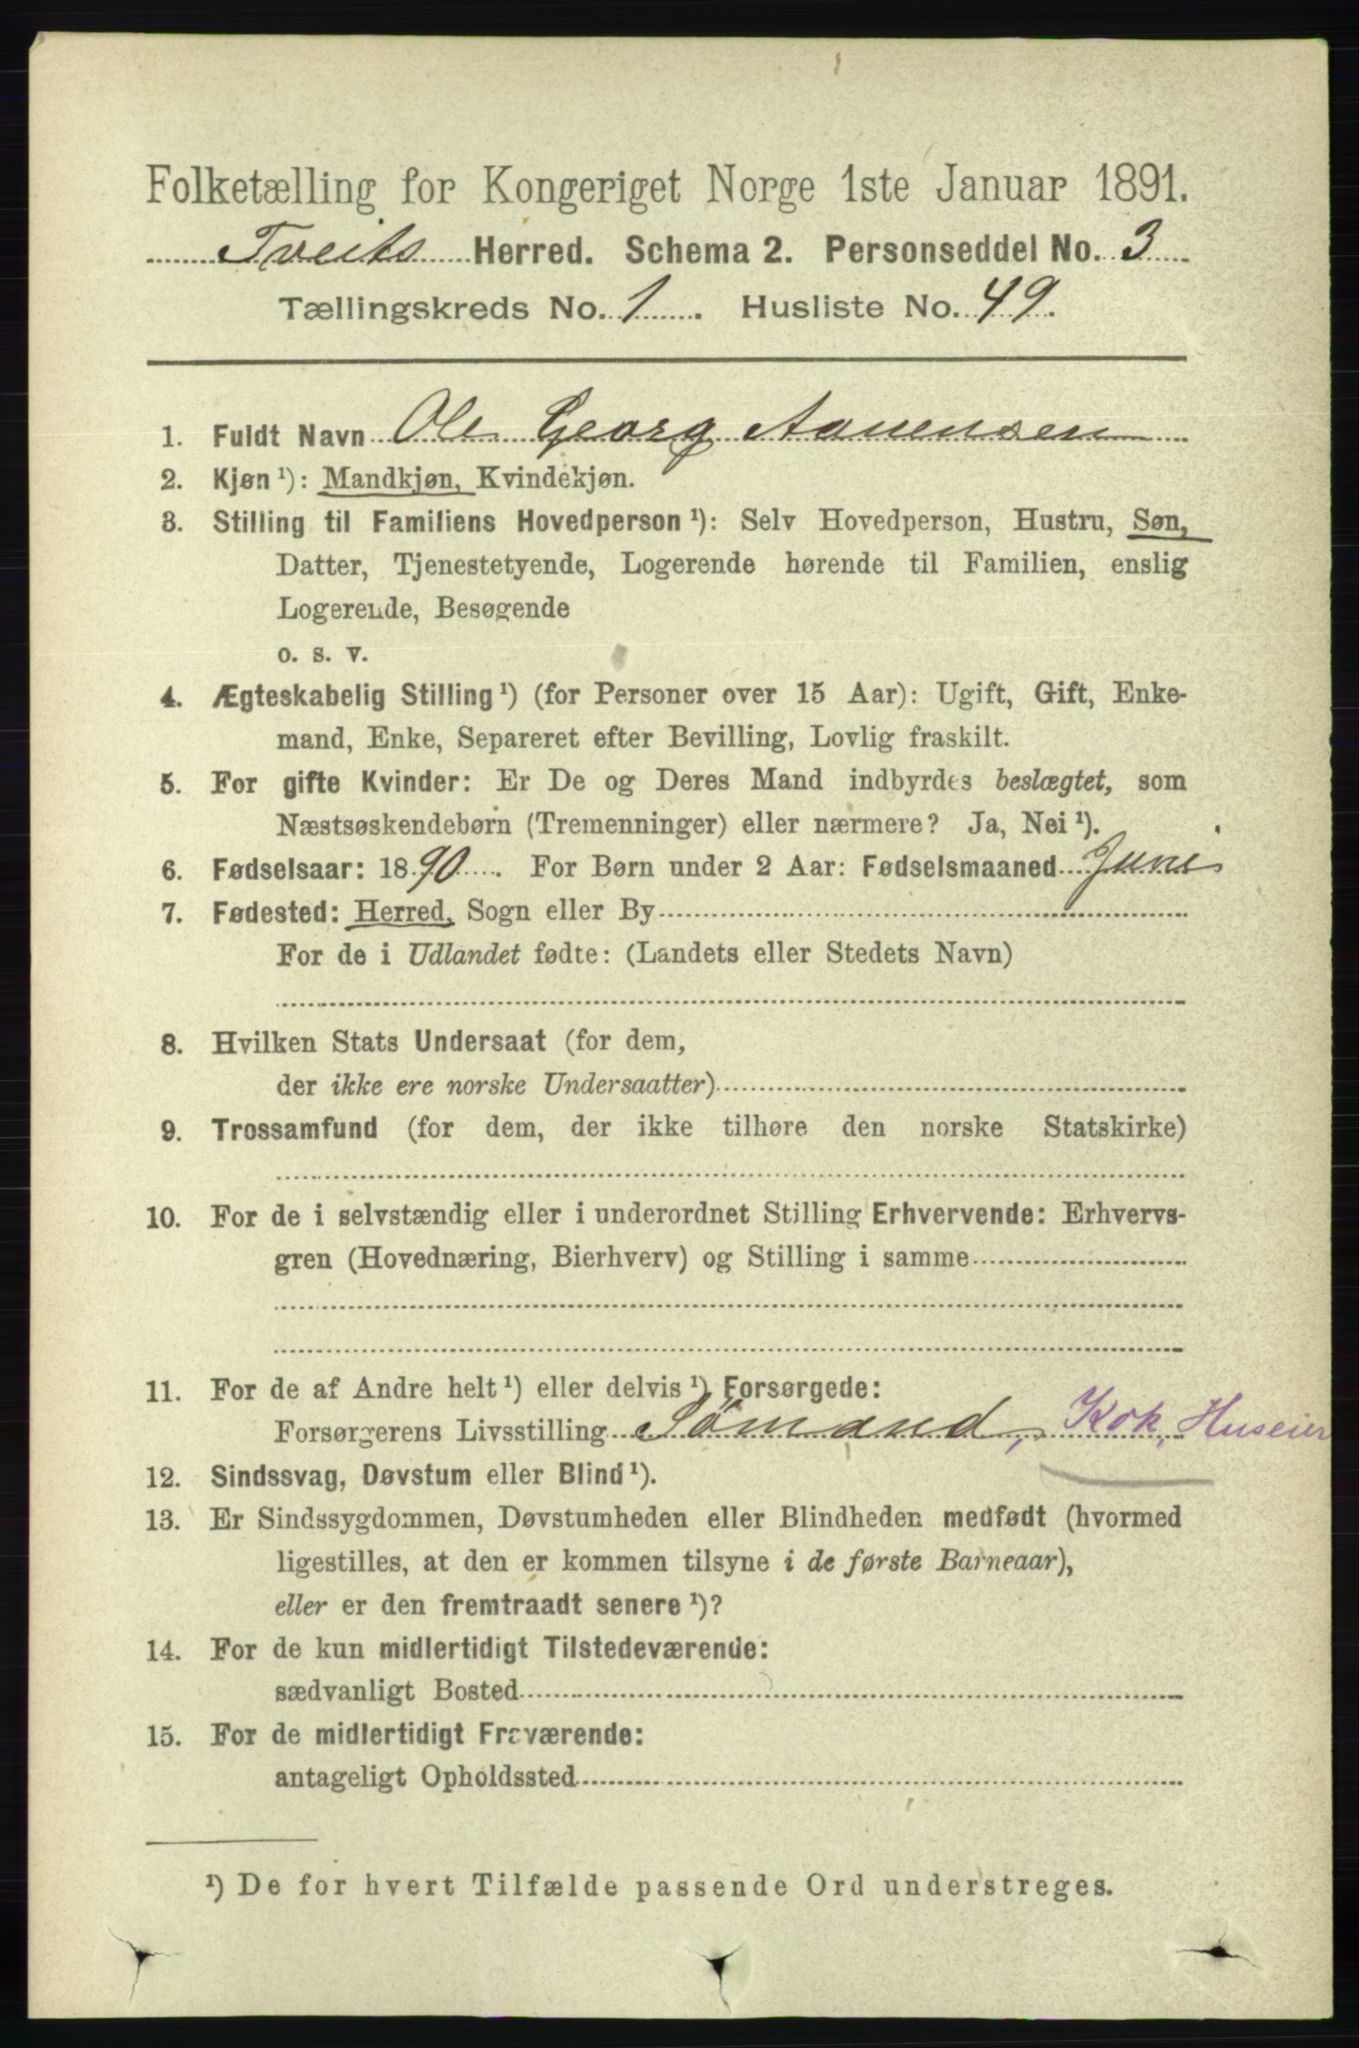 Folketælling for Kongeriget Norge 1ste Januar 1891.
Tveits Herred. Schema 2. Personseddel No. 3
Tællingskreds No. 1. Husliste No. 49.
1. Fuldt Navn Ole Georg Aanensen
2. Kjøn ¹): Mandkjøn, Kvindekjøn.
3. Stilling til Familiens Hovedperson ¹): Selv Hovedperson, Hustru, Søn,
Datter, Tjenestetyende, Logerende hørende til Familien, enslig
Logerende, Besøgende
o. s. v.
4. Ægteskabelig Stilling ¹) (for Personer over 15 Aar): Ugift, Gift, Enke-
mand, Enke, Separeret efter Bevilling, Lovlig fraskilt.
5. For gifte Kvinder: Er De og Deres Mand indbyrdes beslægtet, som
Næstsøskendebørn (Tremenninger) eller nærmere? Ja, Nei ¹).
6. Fødselsaar: 1890. For Børn under 2 Aar: Fødselsmaaned Juni
7. Fødested: Herred, Sogn eller By
For de i Udlandet fødte: (Landets eller Stedets Navn)
8. Hvilken Stats Undersaat (for dem,
der ikke ere norske Undersaatter)
9. Trossamfund (for dem, der ikke tilhøre den norske Statskirke)
10. For de i selvstændig eller i underordnet Stilling Erhvervende: Erhvervs-
gren (Hovednæring, Bierhverv) og Stilling i samme
11. For de af Andre helt ¹) eller delvis ¹) Forsørgede:
Forsørgerens Livsstilling Sømand, Kok, Huseier
12. Sindssvag, Døvstum eller Blind ¹).
13. Er Sindssygdommen, Døvstumheden eller Blindheden medfødt (hvormed
ligestilles, at den er kommen tilsyne i de første Barneaar),
eller er den fremtraadt senere ¹)?
14. For de kun midlertidigt Tilstedeværende:
sædvanligt Bosted
15. For de midlertidigt Fraværende:
antageligt Opholdssted
¹) De for hvert Tilfælde passende Ord understreges.